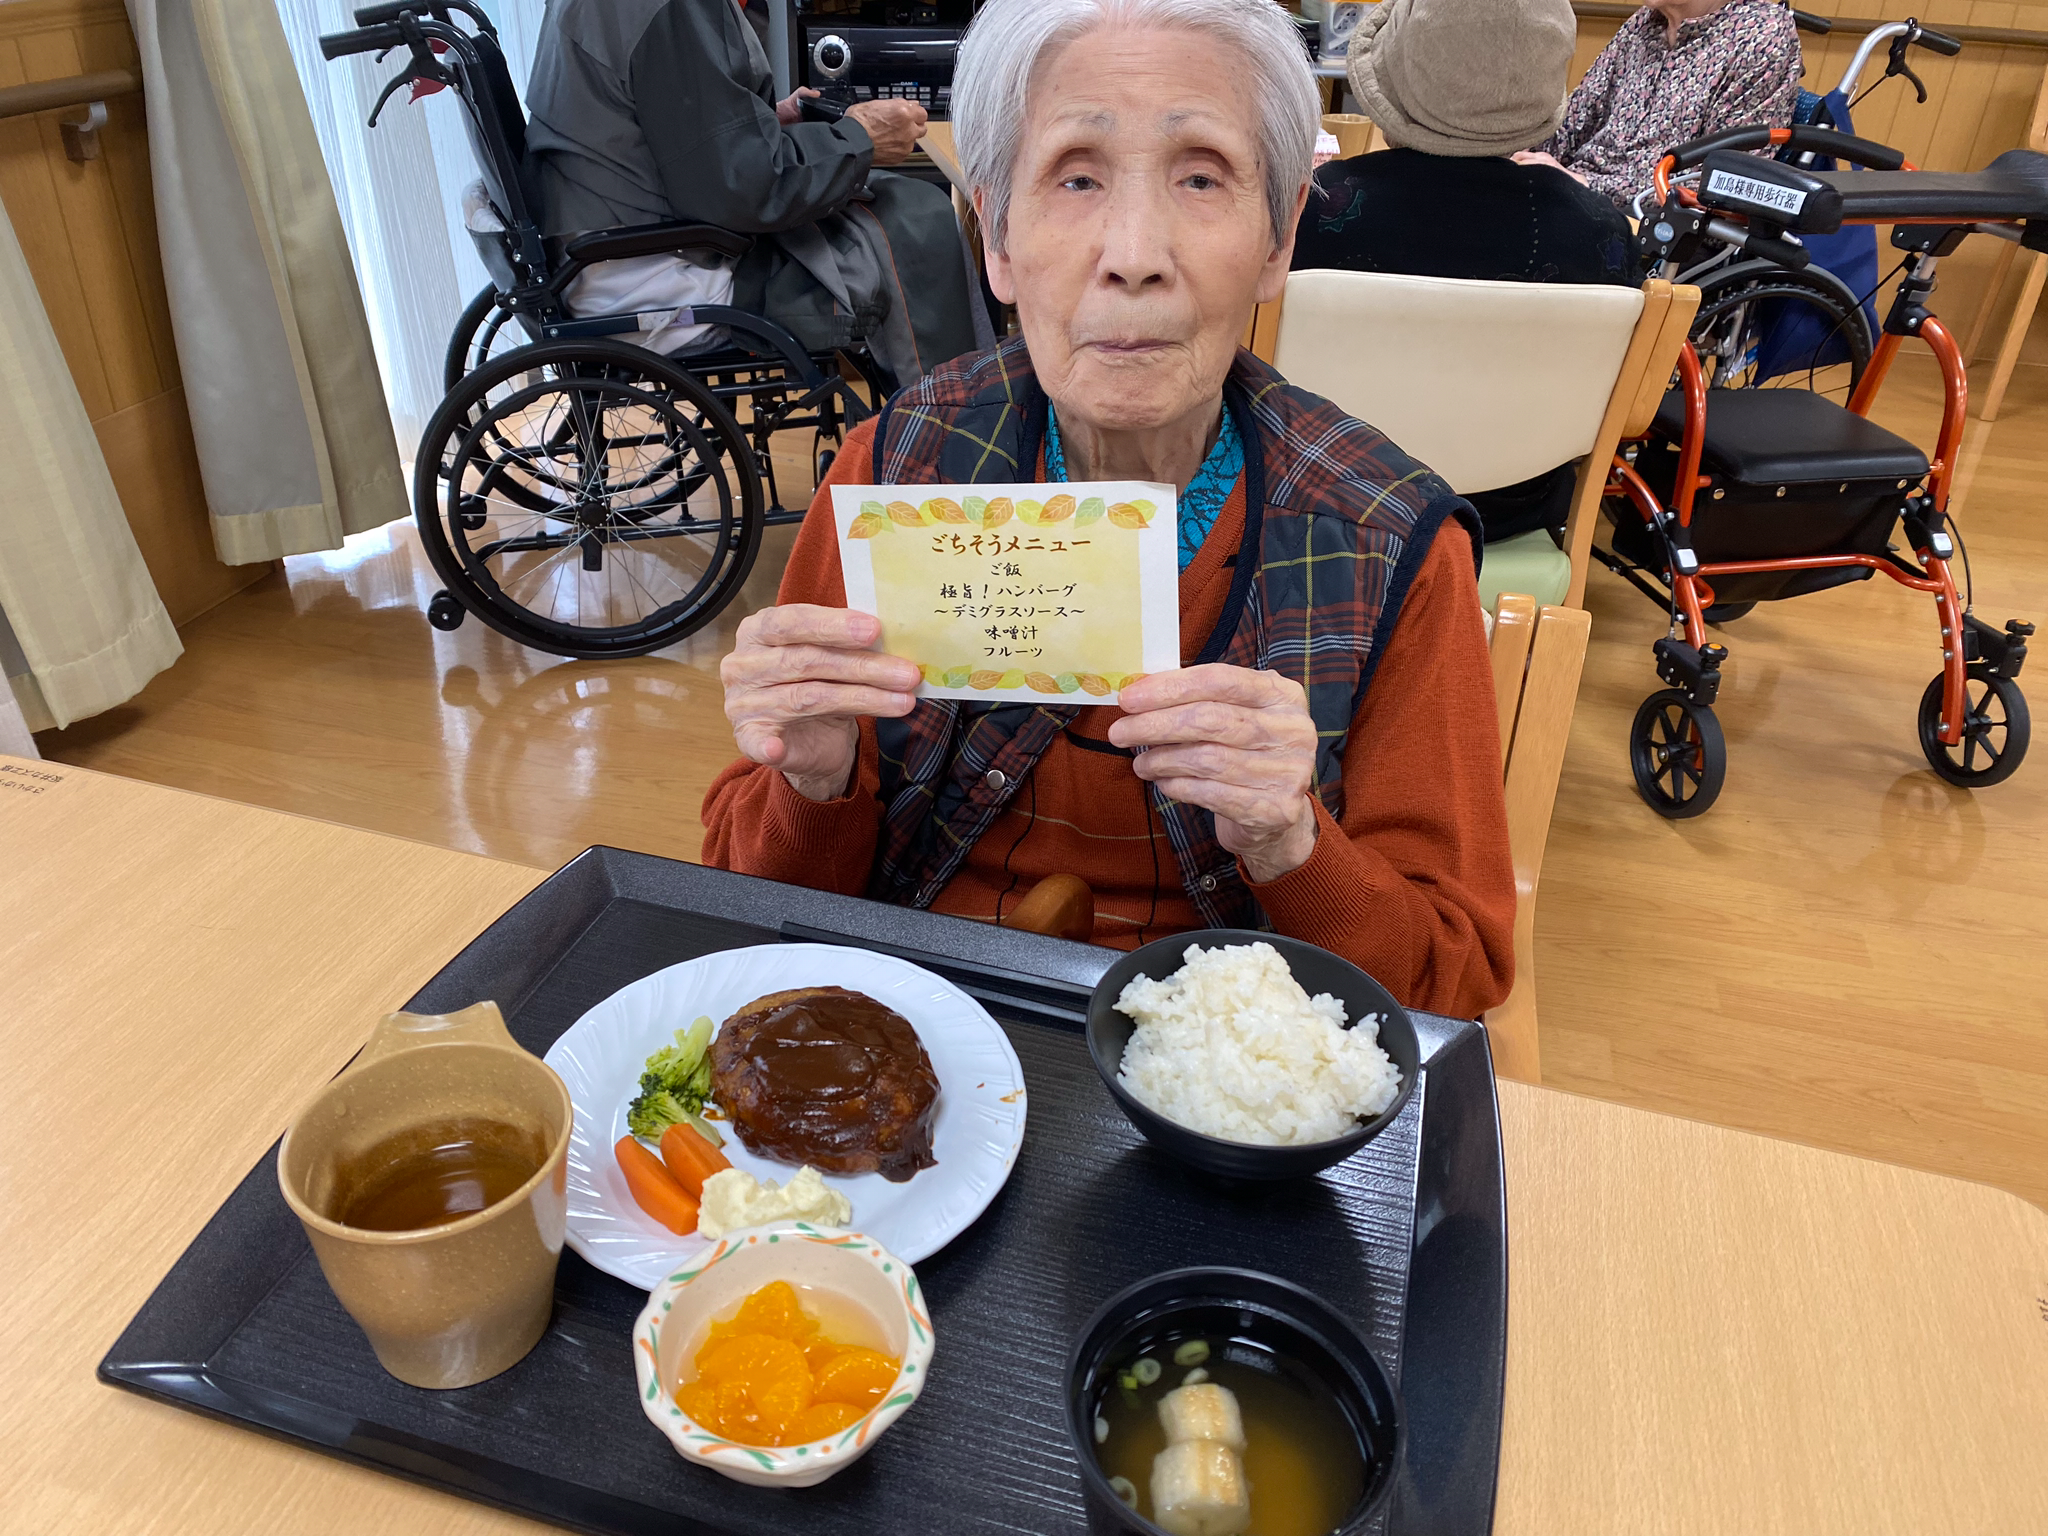 加島様専用歩行器
ごちそうメニュー
ご飯
極旨!ハンバーグ
~デミグラスソース~
味噌汁
フルーツ